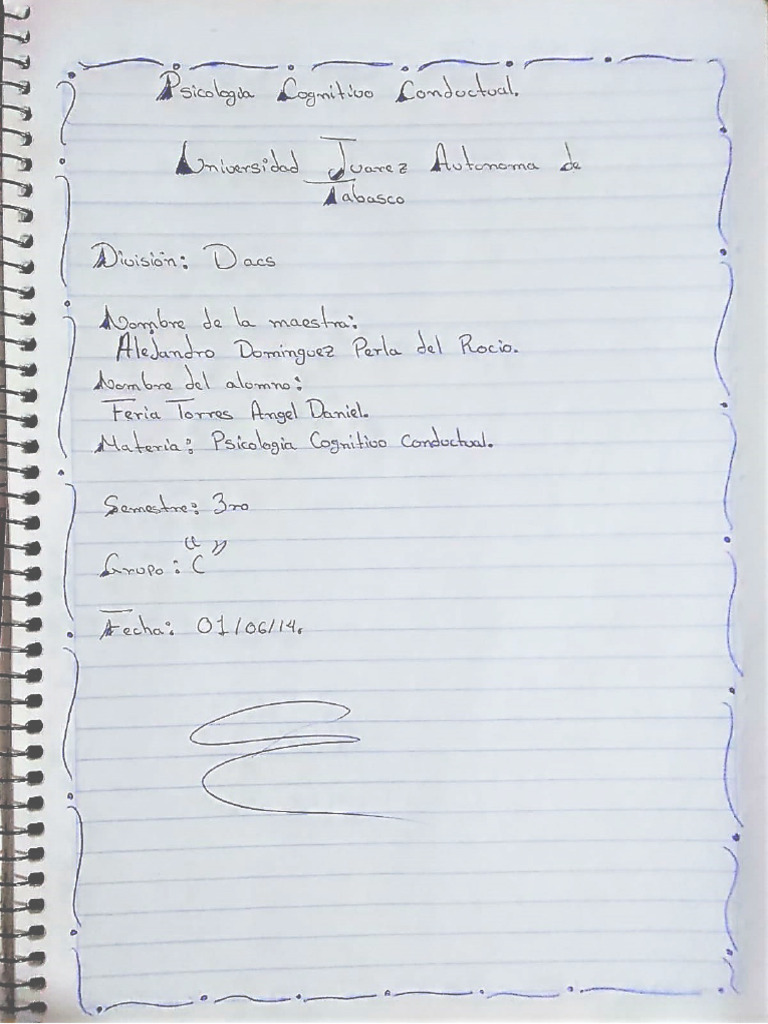 Psicologia Cognitivo Conductual.
Universidad Juarez Autonoma de
Tabasco
División: Dacs
Nombre de la maestra:
Alejandro Dominguez Perla del Rocio.
Nombre del alomno:
Feria Torres Angel Daniel.
Materia: Psicologia Cognitivo Conductual.
Semestre: 3ro
Grupo: "C"
Fecha: 01/06/14.